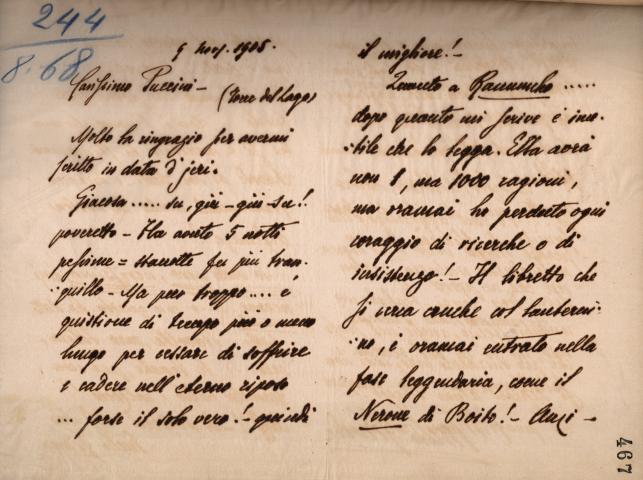 244
8.68
9 Nov. 1905.
Carissimo Puccini —
(Torre del Lago)
Molto La ringrazio per avermi
scritto in data d'jeri.
Giacosa ..... su, giù - giù - su!!
poveretto - Ha avuto 5 notti
pessime = stanotte fu più tran-
quillo - Ma pur troppo .... è
quistione di tempo più o meno
lungo per cessare di soffrire
e cadere nell'eterno riposo
... forse il solo vero! - quindi
il migliore! -
Quanto a Ramuncho .....
dopo quanto mi scrive è inu-
tile che lo legga. Ella avrà
non 1, ma 1000 ragioni,
ma oramai ho perduto ogni
coraggio di ricerche o di
insistenze! - Il libretto che
si cerca anche col lanterni-
no, è oramai entrato nella
fase leggendaria, come il
Nerone di Boito! - Anzi -
467